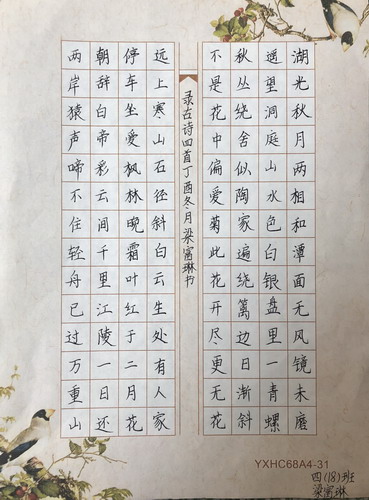 湖光秋月两相和潭面无风镜未磨
遥望洞庭山水色白银盘里一青螺
秋丛绕舍似陶家遍绕篱边日渐斜
不是花中偏爱菊此花开尽更无花
录古诗四首丁酉冬月梁富琳书
远上寒山石径斜白云生处有人家
停车坐爱枫林晚霜叶红于二月花
朝辞白帝彩云间千里江陵一日还
两岸猿声啼不住轻舟已过万重山
YXHC68A4-31
四(18)班
梁富琳